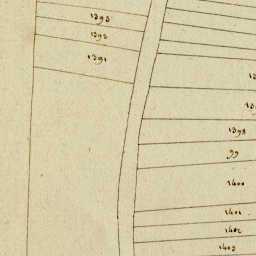 1393
1392
1391
1398
99
1400
1401
1402
1403